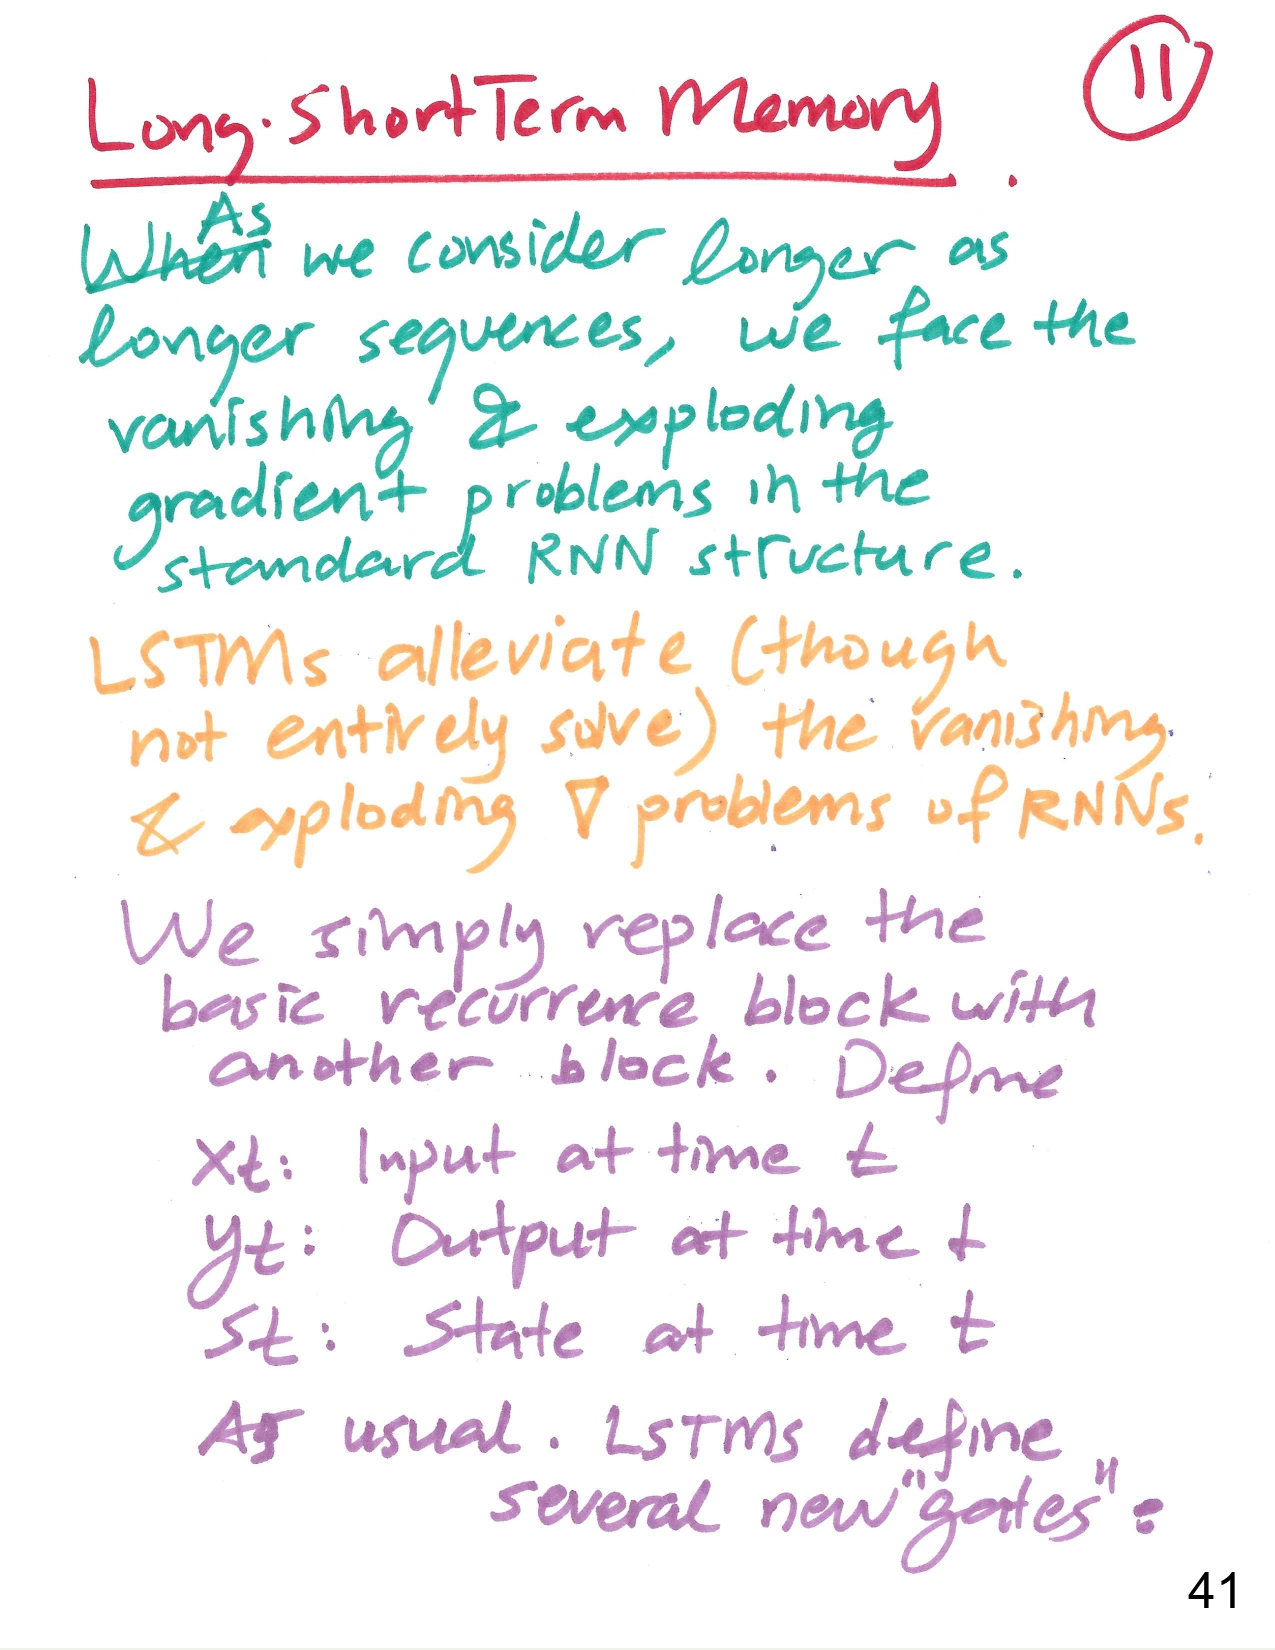 11
Long-Short Term Memory.
As
When we consider longer as
longer sequences, we face the
vanishing & exploding
gradient problems in the
standard RNN structure.
LSTMs alleviate (though
not entirely solve) the vanishing
& exploding ∇ problems of RNNs.
We simply replace the
basic recurrence block with
another block. Define
xt: Input at time t
yt: Output at time t
St: State at time t
As usual. LSTMs define
several new "gates":
41